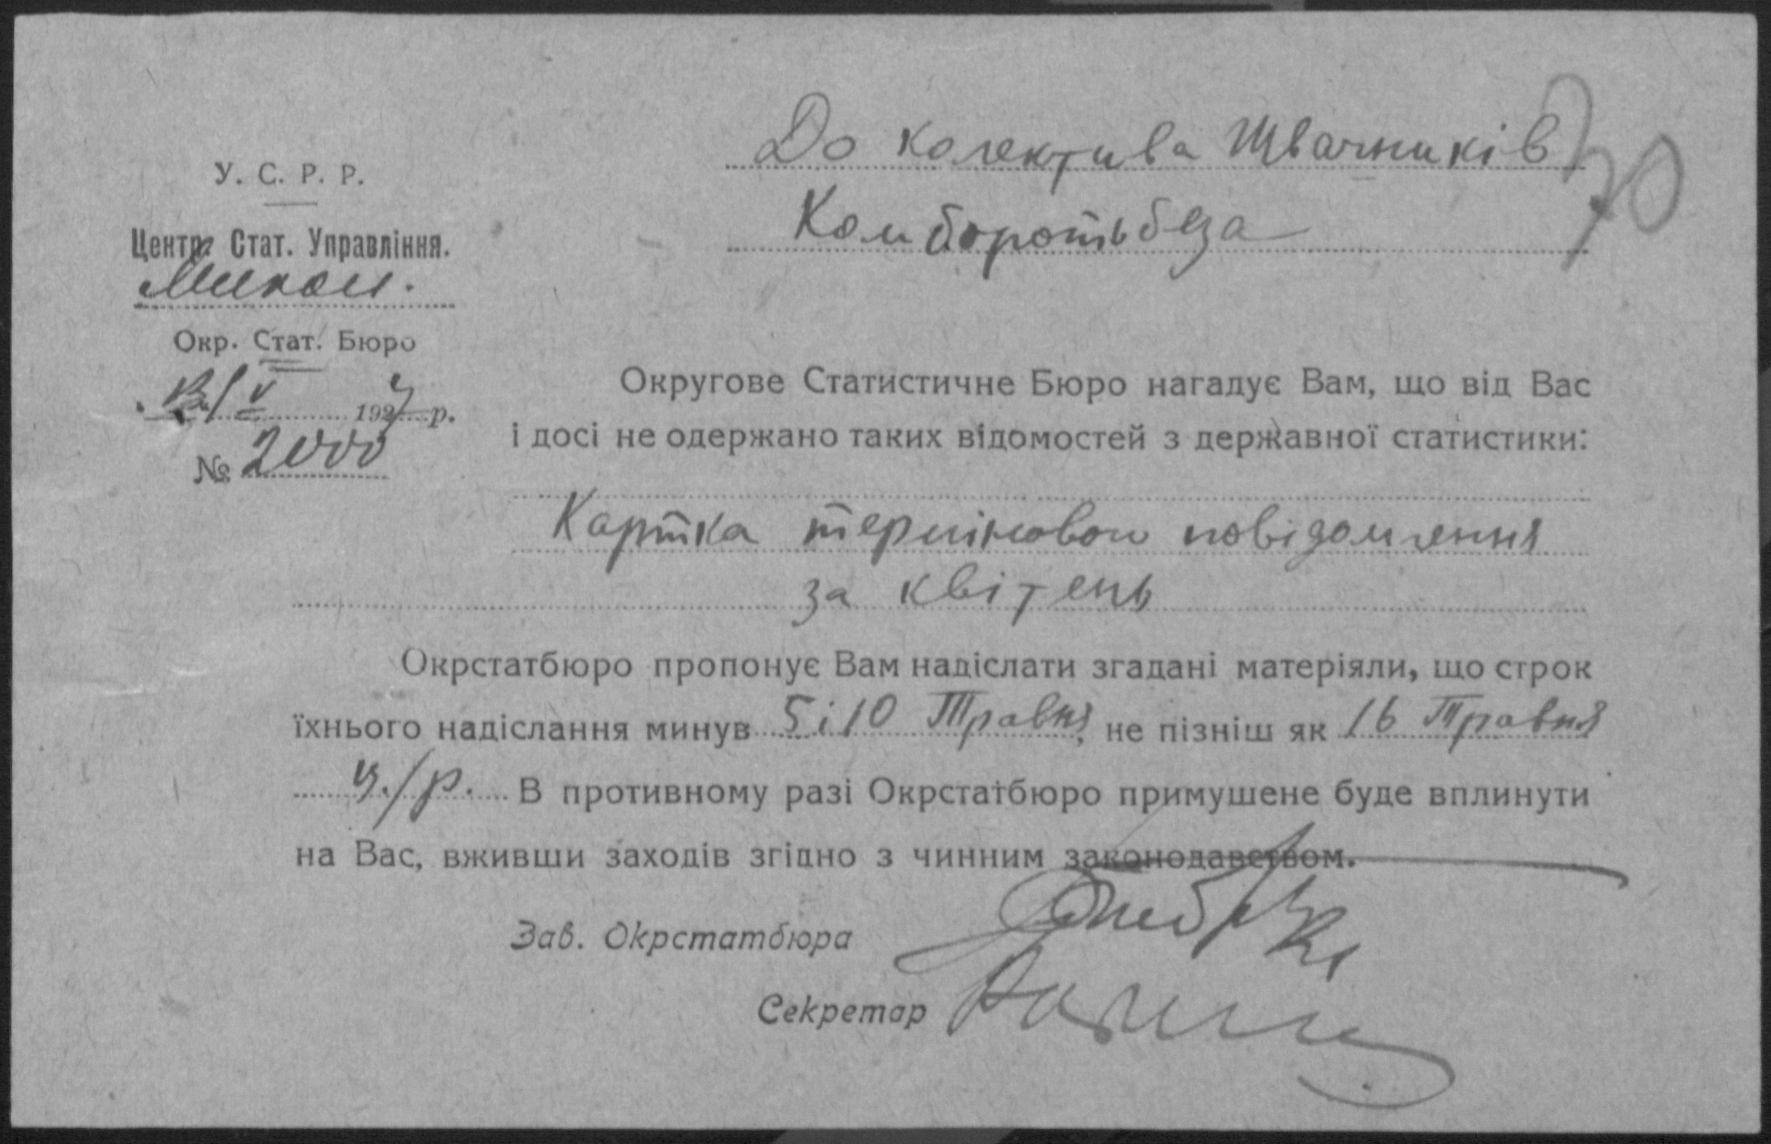 У. С. Р. Р.
Центр. Стат. Управління.
Микол.
Окр. Стат. Бюро
13/V 1927 р.
№ 2000
70
До колектива Швачників
Комборотьбеза
Округове Статистичне Бюро нагадує Вам, що від Вас
і досі не одержано таких відомостей з державної статистики:
Картка термінового повідомлення
за квітень
Окрстатбюро пропонує Вам надіслати згадані матеріяли, що строк
їхнього надіслання минув 5 і 10 Травня, не пізніш як 16 Травня
ц./р. В противному разі Окрстатбюро примушене буде вплинути
на Вас, вживши заходів згідно з чинним законодавством.
Зав. Окрстатбюра
Секретар